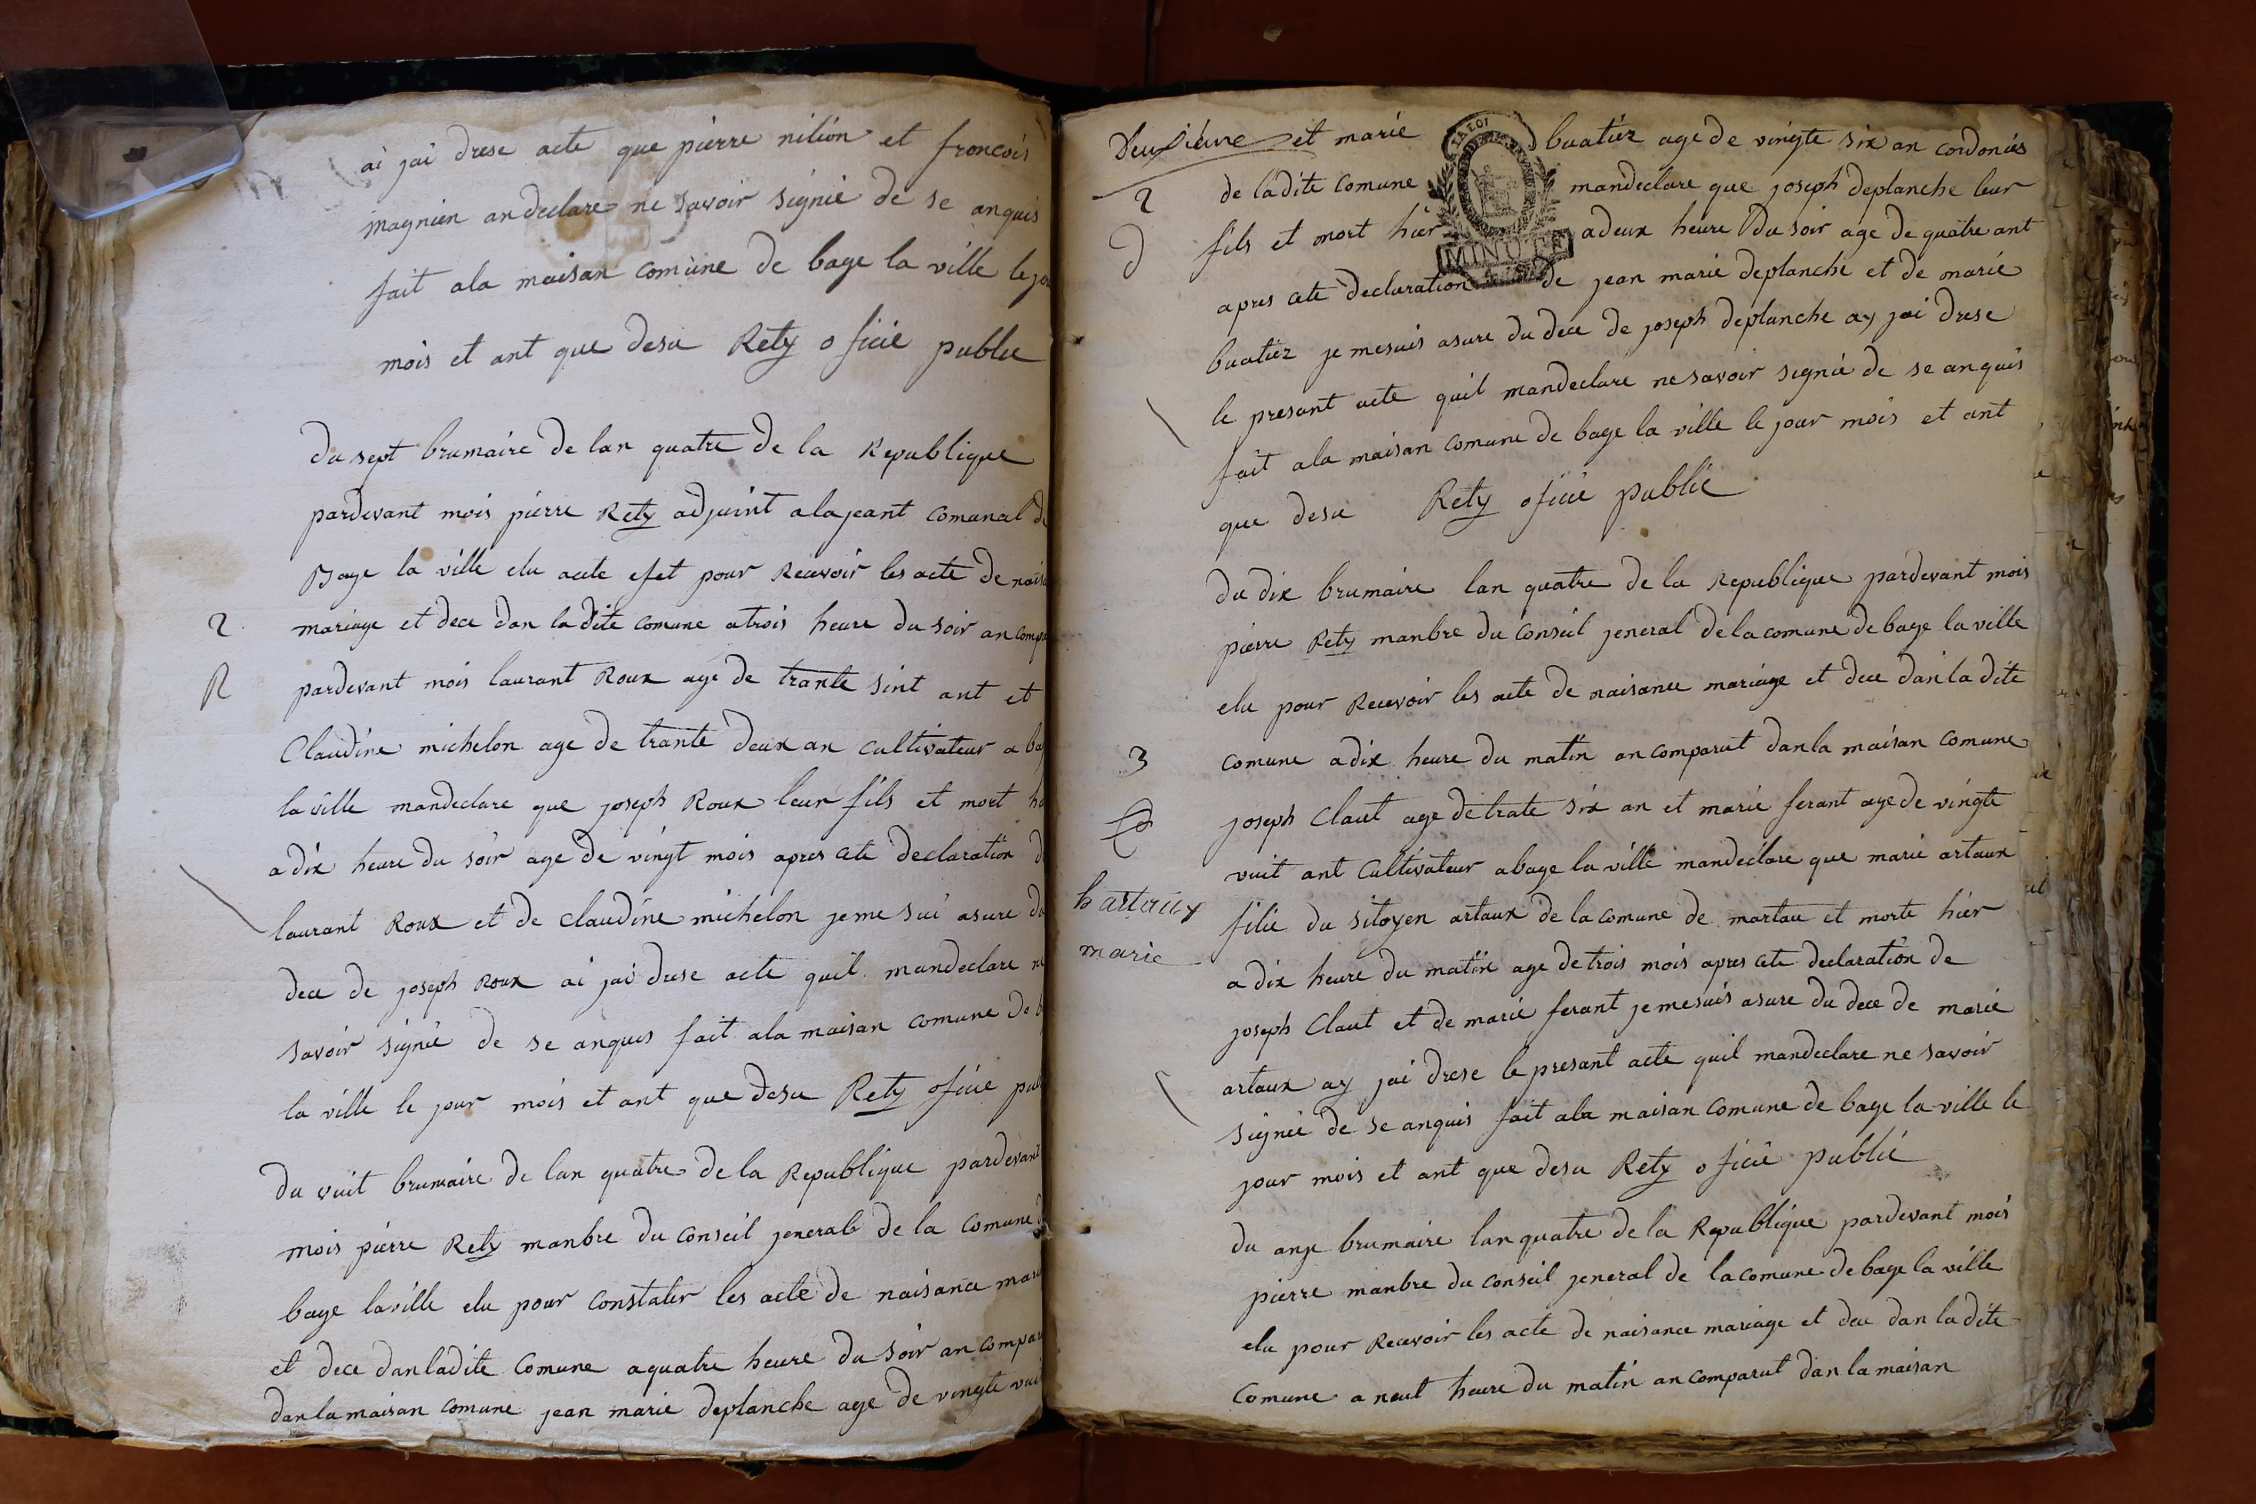 ai jai drese acte que pierre nilion et froncois
magnien an declare ne savoir signie de se anquis
fait ala maisan comune de bage la ville le jou
mois et ant que desu Rety oficie publie
du sept brumaire de lan quatre de la Republique
pardevant mois pierre Rety adjuint alajeant comunal de
Bage la ville elu acete efet pour Recevoir les acte de nais
mariage et dece dan la dite comune atrois heure du soir an compa
2
pardevant mois laurant Roux age de trante sint ant et
R
Claudine michelon age de trante deux an cultivateur a bag
la ville mandeclare que joseph Roux leur fils et mort
adix heure du soir age de vingt mois apres cete declaration d
laurant Roux et de claudine michelon je me sui asure du
dece de joseph Roux ai jai drese acte quil mandeclare ne
savoir signie de se anques fait ala maisan comune de b
la ville le jour mois et ant que desu Rety oficie pub
du vuit brumaire de lan quatre de la Republique pardevant
mois pierre Rety manbre du conseil jeneral de la comune d
bage laville elu pour constater les acte de naisance mari
et dece danladite comune aquatre heure du soir an compar
danlamaisan comune jean marie deplanche age de vingte vui
Deusiéme et marie buatier age de vingte six an cordoniés
LA LOI
2
de ladite comune mandeclare que joseph deplanche leur
D
fils et mort hier adeux heure du soir age de quatre ant
MINUTE
apres cete declaration de jean marie deplanche et de marie
buatier je mesuis asure du dece de joseph deplanche ay jai drese
le presant acte quil mandeclare ne savoir signié de se anquis
fait ala maisan comune de bage la ville le jour mois et ant
que desu Rety oficie publie
du dix brumaire lan quatre de la Republique pardevant mois
pierre Rety manbre du conseil jeneral de la comune de bage la ville
elu pour Recevoir les acte de naisance mariage et dece dan la dite
3
comune adix heure du matin an comparut danla maisan comune
joseph Claut age detrate six an et marie ferant age de vingte
vuit ant cultivateur abage la ville mandeclare que marie artaux
hartaux
marie
filie du sitoyen artaux de la comune de martau et morte hier
a dix heure du matin age de trois mois apres cete declaration de
joseph Claut et de marie ferant je mesuis asure du dece de marie
artaux ay jai drese le presant acte quil mandeclare ne savoir
signié de se anquis fait ala maisan comune de bage la ville le
jour mois et ant que desu Rety oficie publié
du onze brumaire lan quatre de la Republique pardevant mois
pierre manbre du conseil jeneral de la comune de bage la ville
elu pour Recevoir les acte de naisance mariage et dece dan la dite
comune a neut heure du matin an comparut dan la maisan